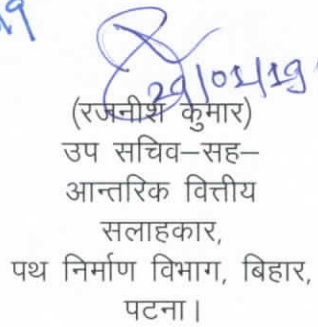 29/01/19
(रजनीश कुमार)
उप सचिव–सह–
आन्तरिक वित्तीय
सलाहकार,
पथ निर्माण विभाग, बिहार,
पटना।